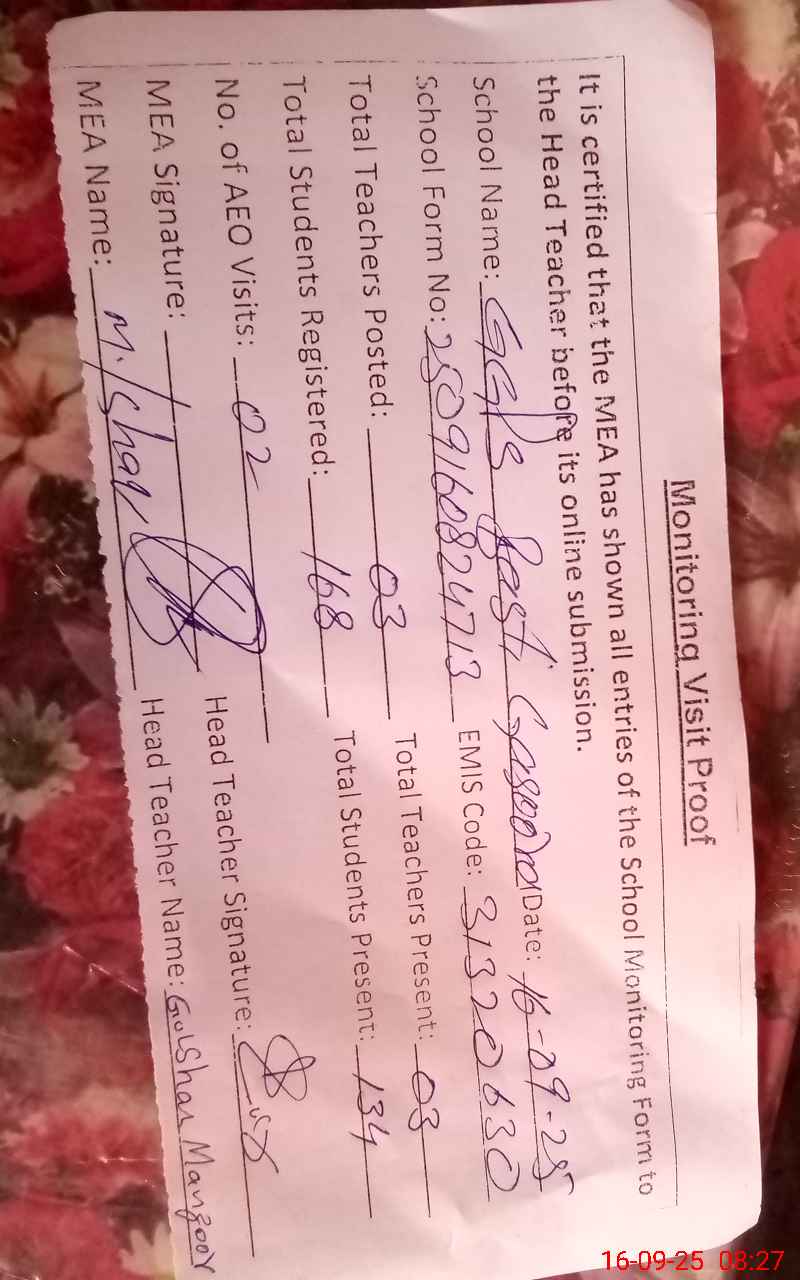 Monitoring Visit Proof
It is certified that the MEA has shown all entries of the School Monitoring Form to
the Head Teacher before its online submission.
School Name: GGPS Basti Date: 16-09-25
School Form No: 2509160824713 EMIS Code: 31320630
Total Teachers Posted: 03 Total Teachers Present: 03
Total Students Registered: 168 Total Students Present: 134
No. of AEO Visits: 02
MEA Signature: Head Teacher Signature:
MEA Name: M. Ishaq Head Teacher Name: Gulshan Manzoor
16-09-25 08:27